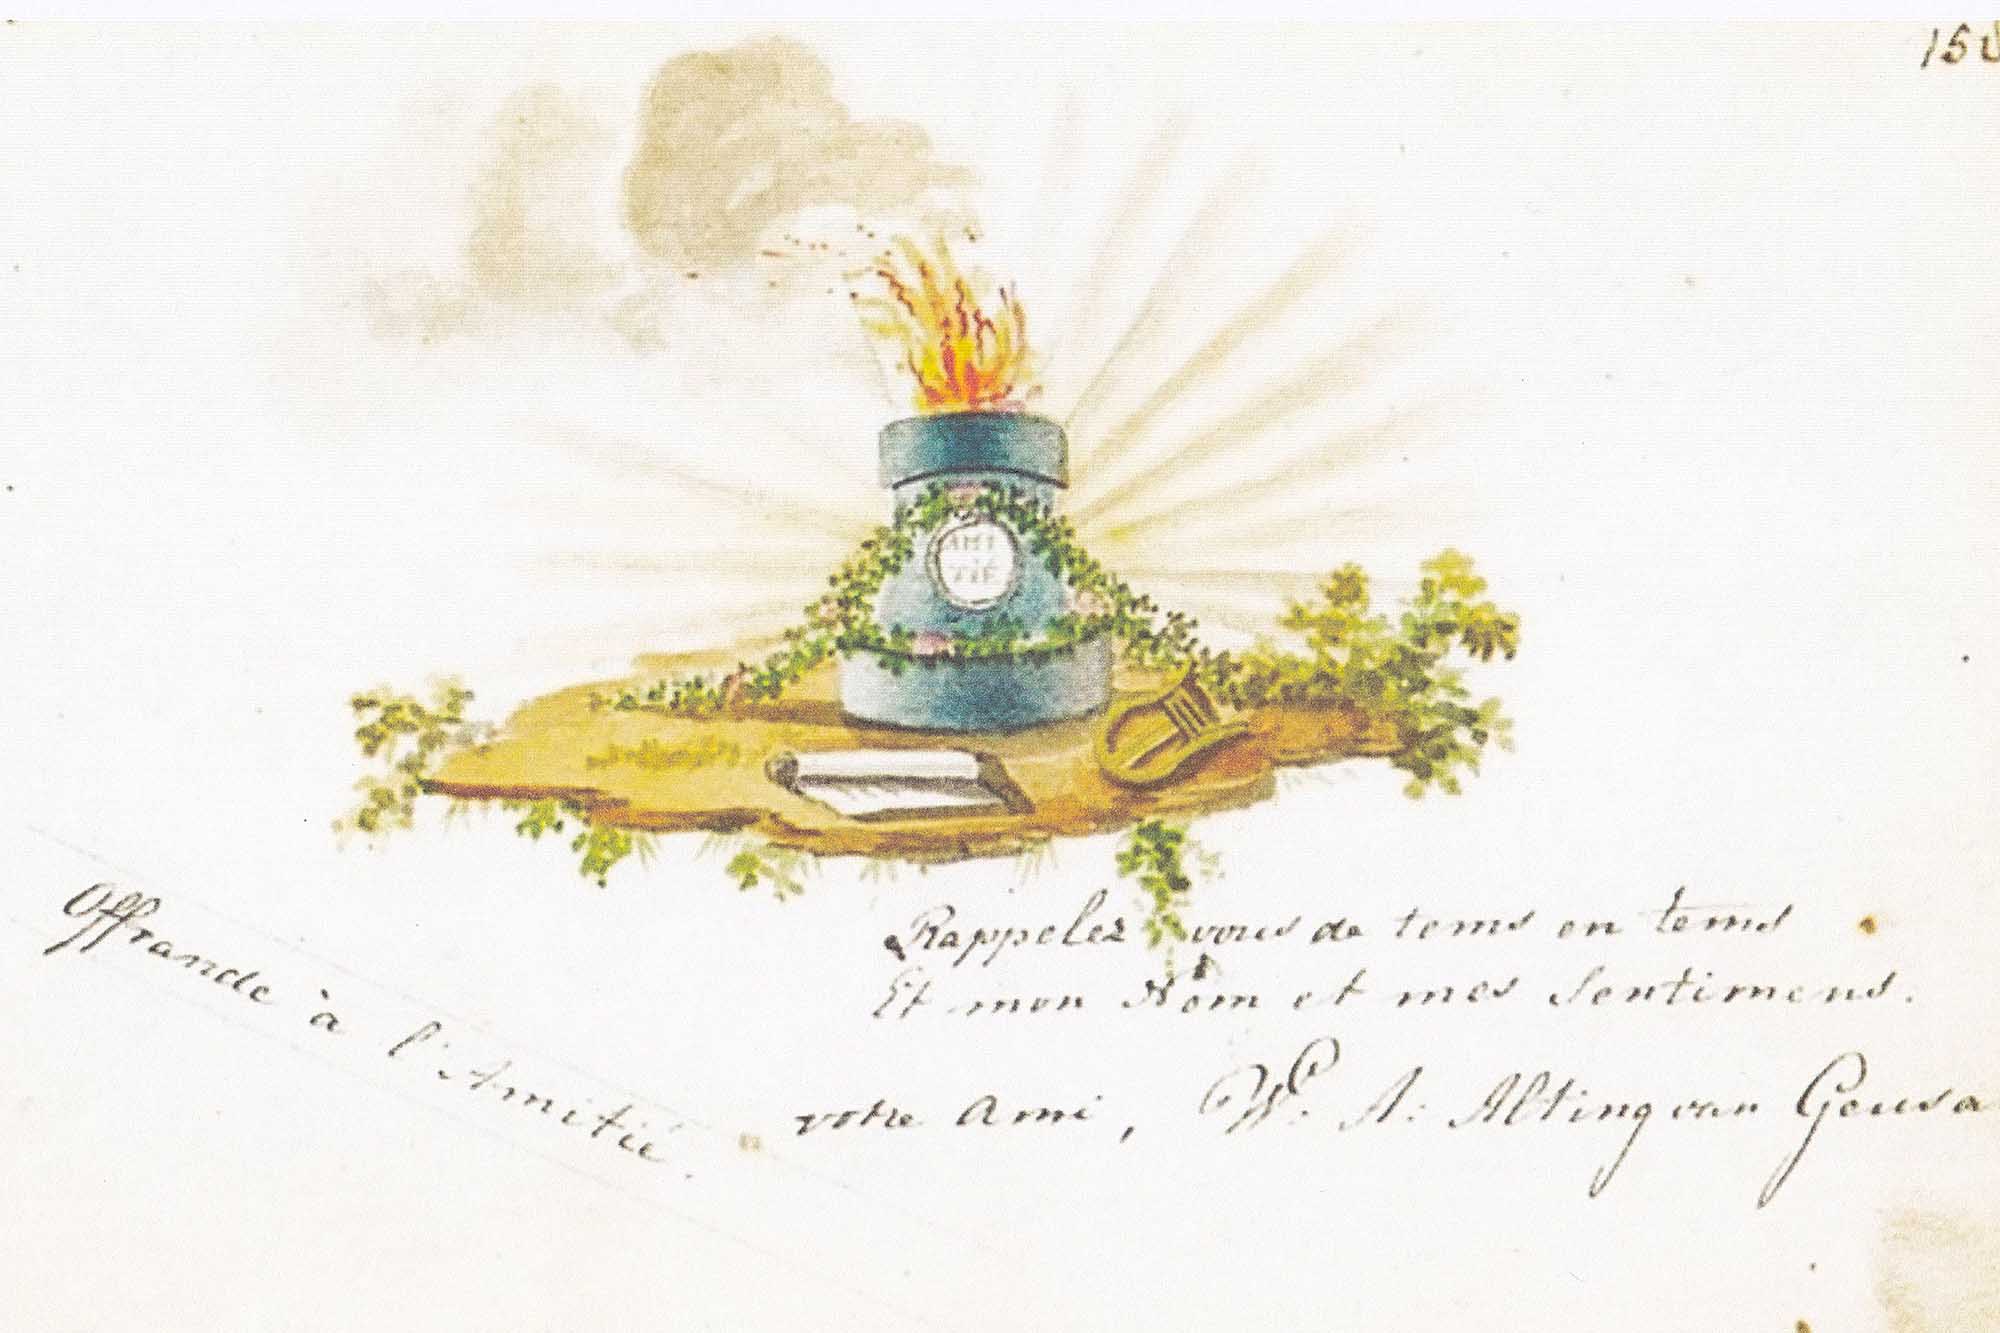 AMI
TIÉ
Offrande à l'Amitié.
Rappelez vous de tems en tems
Et mon Nom et mes Sentimens.
votre Ami, W: A: Alting van Geusa